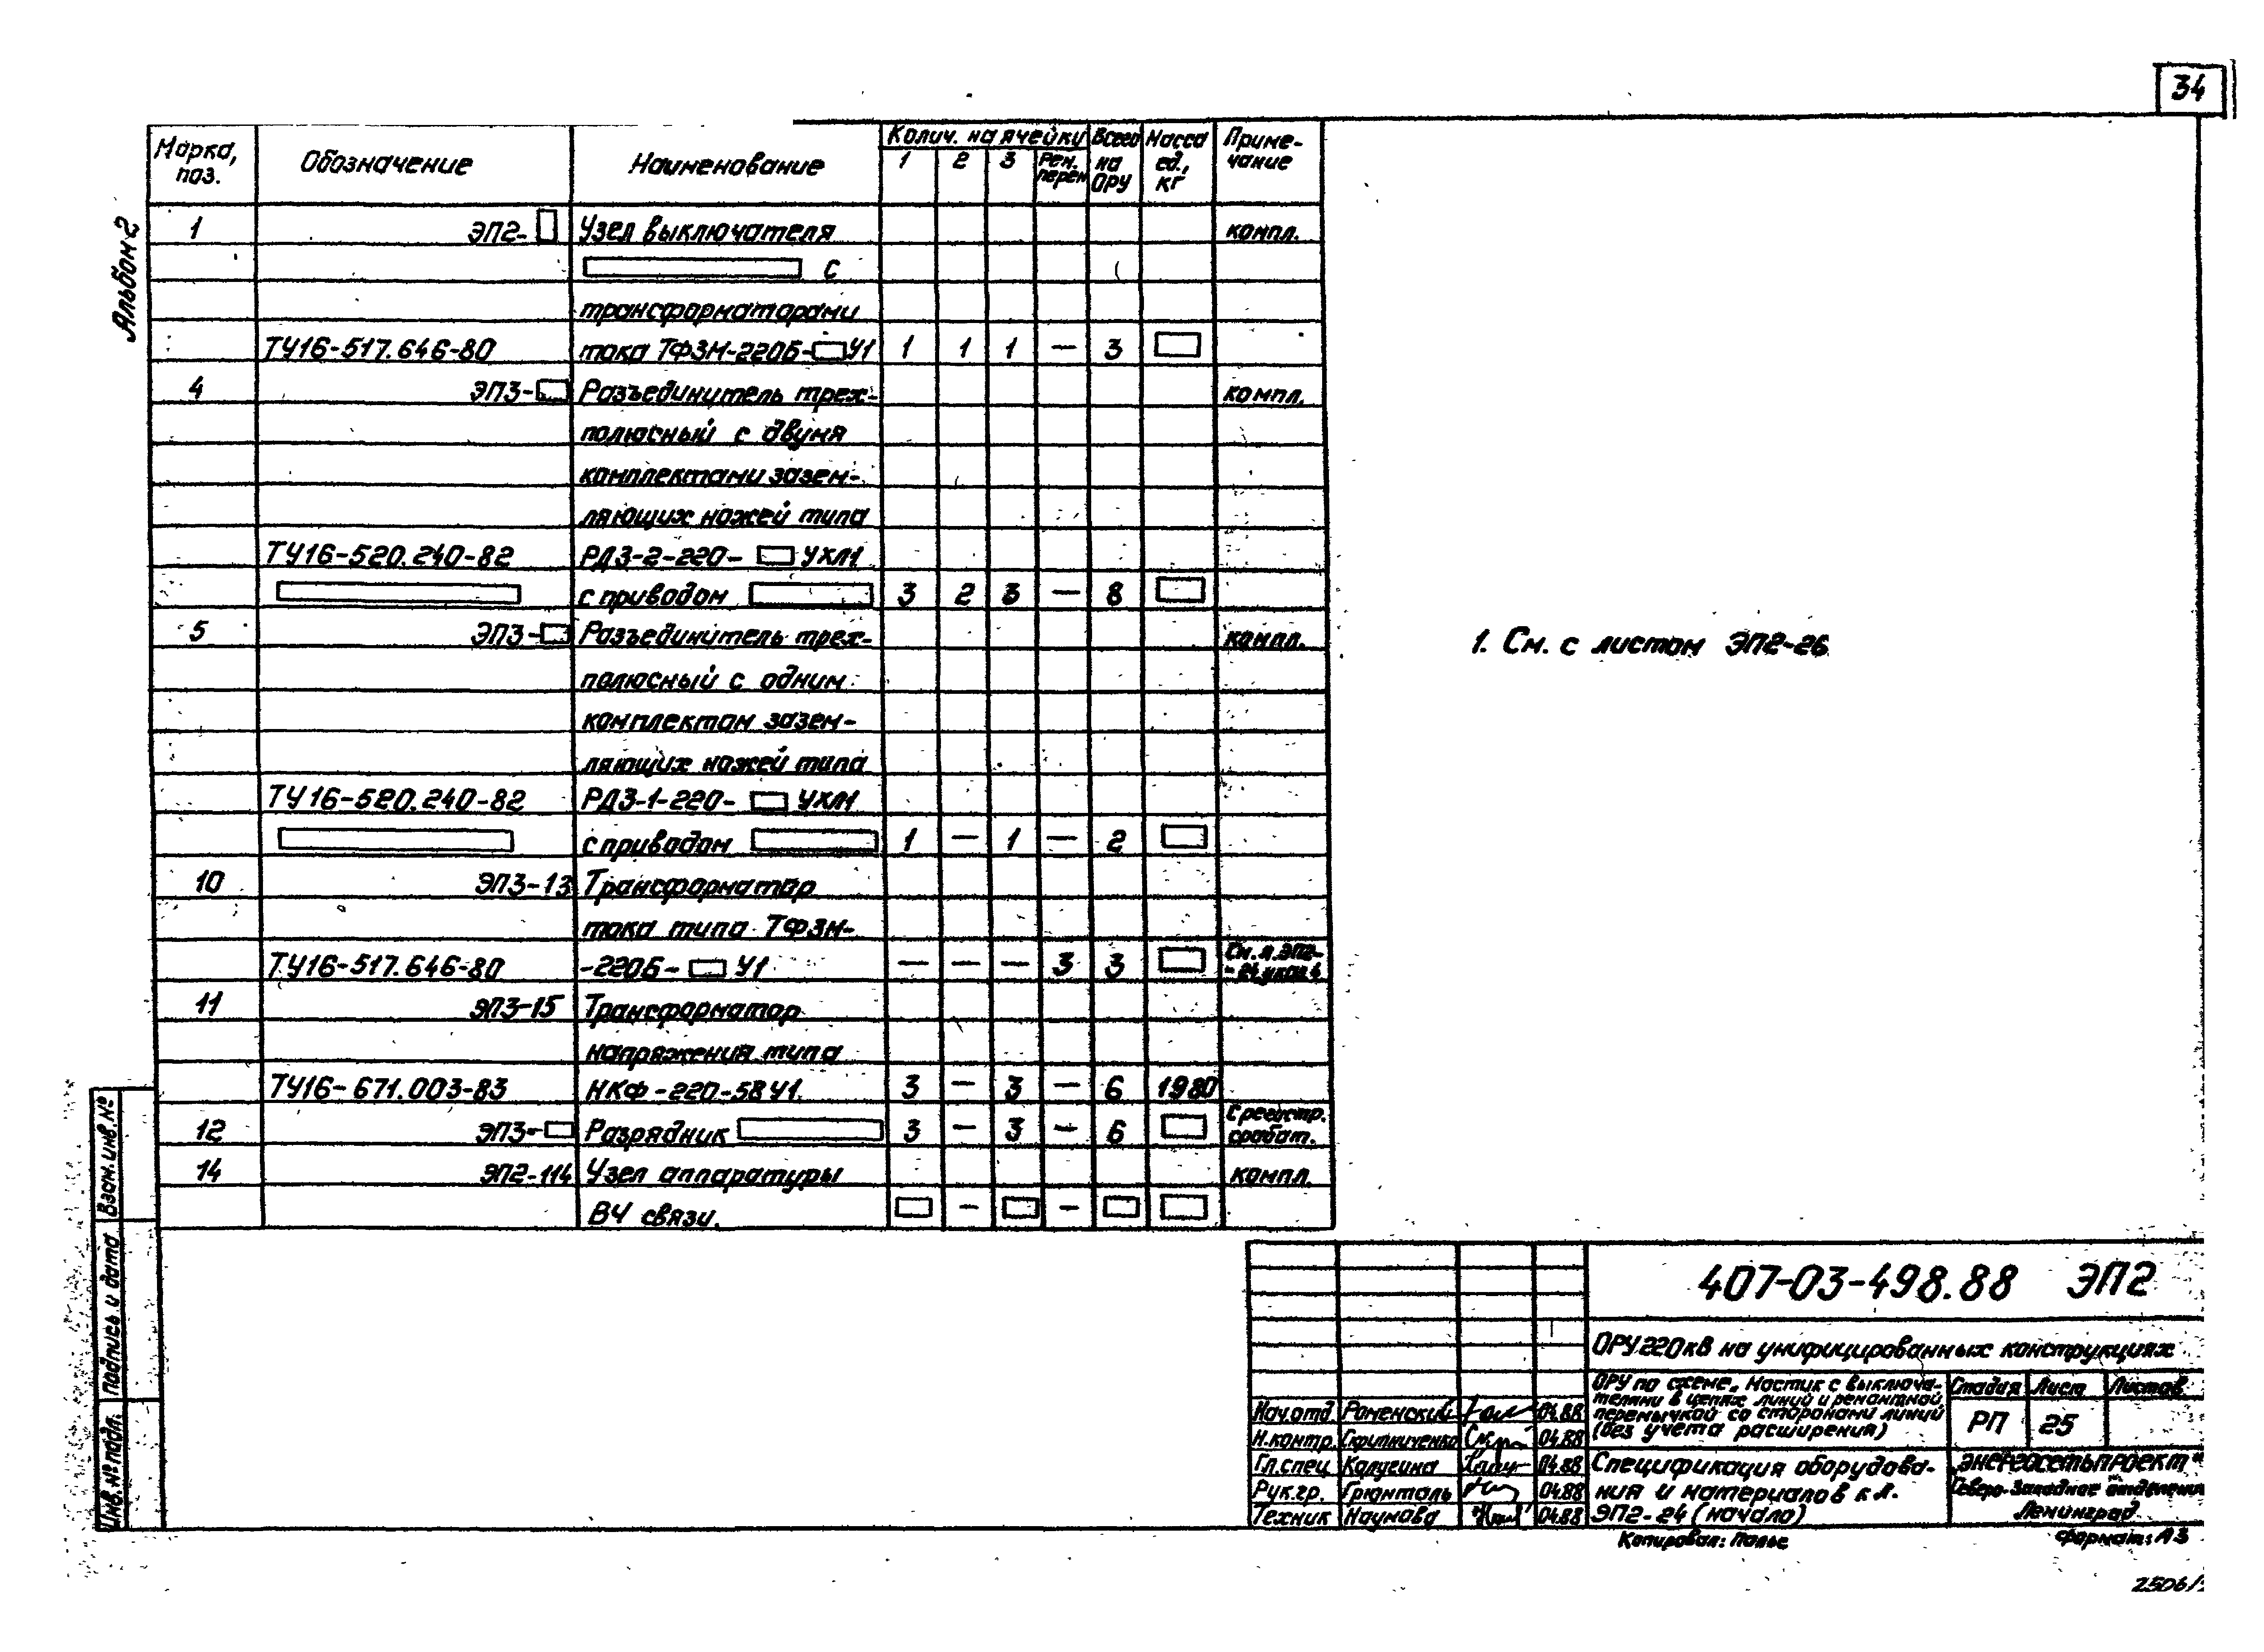 34
Альбом 2
Марка, поз.
Обозначение
Наименование
Колич. на ячейку
1 2 3 Рем. перем
Всего на ОРУ
Масса ед., кг
Приме-
чание
1 ЭП2-□ Узел выключателя компл.
с
трансформаторами
ТУ16-517.646-80 тока ТФЗМ-220Б-□У1 1 1 1 — 3 □
4 ЭП3-□ Разъединитель трех- компл.
полюсный с двумя
комплектами зазем-
ляющих ножей типа
ТУ16-520.240-82 РДЗ-2-220- □ УХЛ1
□ с приводом □ 3 2 3 — 8 □
5 ЭП3-□ Разъединитель трех- компл.
полюсный с одним
комплектом зазем-
ляющих ножей типа
ТУ16-520.240-82 РДЗ-1-220- □ УХЛ1
□ с приводом □ 1 — 1 — 2 □
10 ЭП3-13 Трансформатор
тока типа ТФЗМ-
ТУ16-517.646-80 -220Б- □ У1 — — — 3 3 □ См. л. ЭП2-
-24 указ. 4
11 ЭП3-15 Трансформатор
напряжения типа
ТУ16-671.003-83 НКФ-220-58У1. 3 — 3 — 6 1980
12 ЭП3-□ Разрядник □ 3 — 3 — 6 □ С регистр.
сработ.
14 ЭП2-114 Узел аппаратуры компл.
ВЧ связи. □ — □ — □ □
1. См. с листом ЭП2-26
Взам. инв. №
Подпись и дата
Инв. № подл.
407-03-498.88 ЭП2
ОРУ 220 кВ на унифицированных конструкциях
ОРУ по схеме „Мостик с выключа-
телями в цепях линий и ремонтной
перемычкой со стороны линий
(без учета расширения)
Стадия Лист Листов
РП 25
Нач.отд. Роменский 04.88
Н.контр. Скрипниченко 04.88
Гл.спец. Калугина 04.88
Рук.гр. Грюнталь 04.88
Техник Наумова 04.88
Спецификация оборудова-
ния и материалов к л.
ЭП2-24 (начало)
„Энергосетьпроект“
Северо-Западное отделение
Ленинград
Копировал:
Формат: А3
2506/